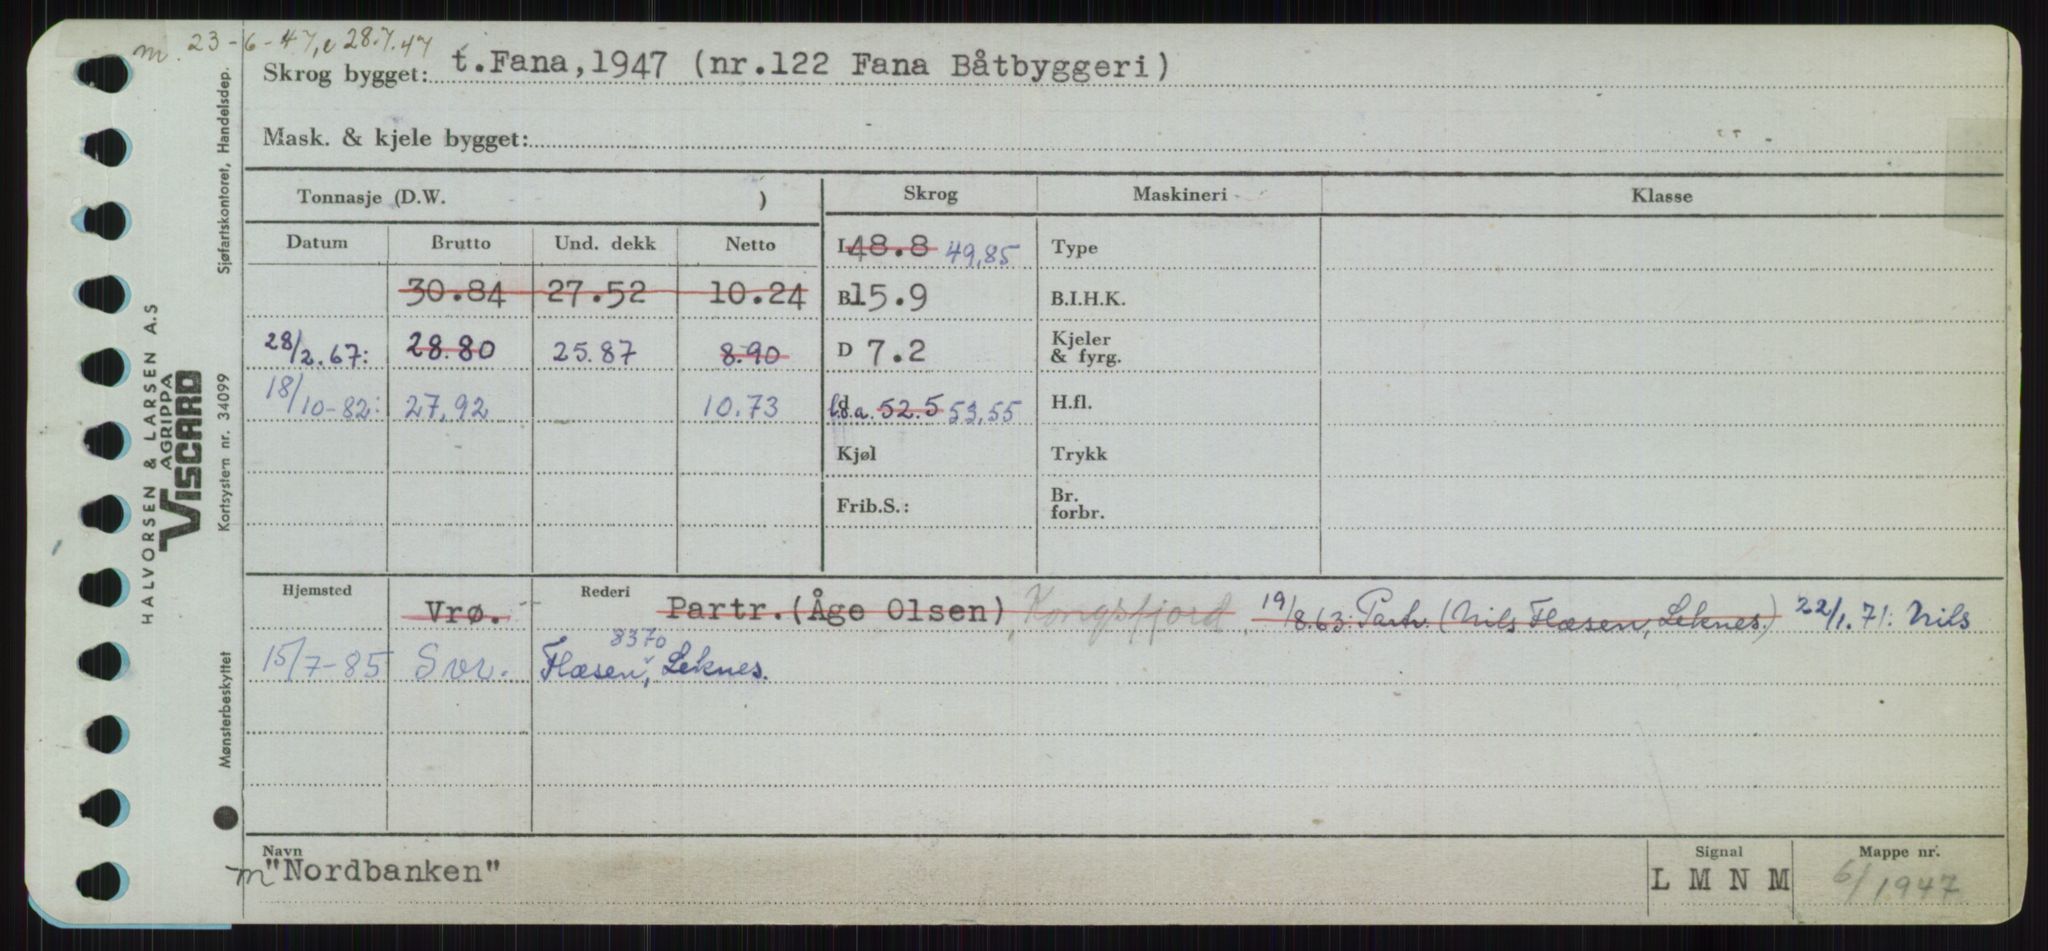 m. 23-6-47, e 28.7.47
Skrog bygget: t.Fana,1947 (nr.122 Fana Båtbyggeri)
Mask. & kjele bygget:
Tonnasje (D.W. ) Skrog Maskineri Klasse
Datum Brutto Und. dekk Netto L 48.8 49,85 Type
30.84 27.52 10.24 B 15.9 B.I.H.K.
28/2.67: 28.80 25.87 8.90 D 7.2 Kjeler & fyrg.
18/10-82: 27,92 10.73 l.o.a. 52.5 53,55 H.fl.
Kjøl Trykk
Frib.S.: Br. forbr.
Hjemsted Vrø. Rederi Partr.(Åge Olsen), Kongsfjord. 19/8.63: Partr. (Nils Flæsen, Leknes.) 22/1.71: Nils
15/7-85 Svv. Flæsen, 8370 Leknes.
Navn Signal Mappe nr.
m "Nordbanken" L M N M 6/1947
Sjøfartskontoret, Handelsdep.
Kortsystem nr. 34099
Mønsterbeskyttet
HALVORSEN & LARSEN A.S
AGRIPPA
VISCARD